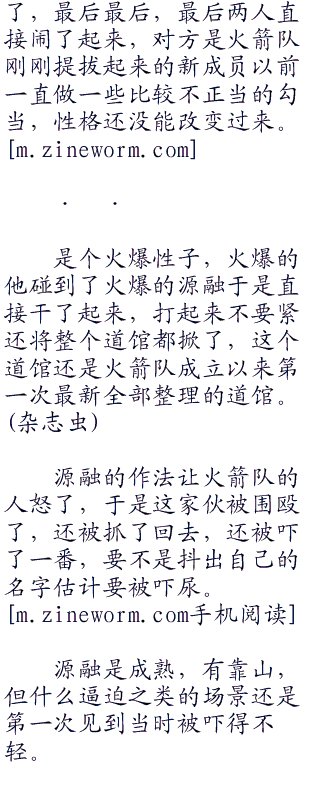 了，最后最后，最后两人直
接闹了起来，对方是火箭队
刚刚提拔起来的新成员以前
一直做一些比较不正当的勾
当，性格还没能改变过来。
[m.zineworm.com]
. .
是个火爆性子，火爆的
他碰到了火爆的源融于是直
接干了起来，打起来不要紧
还将整个道馆都掀了，这个
道馆还是火箭队成立以来第
一次最新全部整理的道馆。
(杂志虫)
源融的作法让火箭队的
人怒了，于是这家伙被围殴
了，还被抓了回去，还被吓
了一番，要不是抖出自己的
名字估计要被吓尿。
[m.zineworm.com手机阅读]
源融是成熟，有靠山，
但什么逼迫之类的场景还是
第一次见到当时被吓得不
轻。